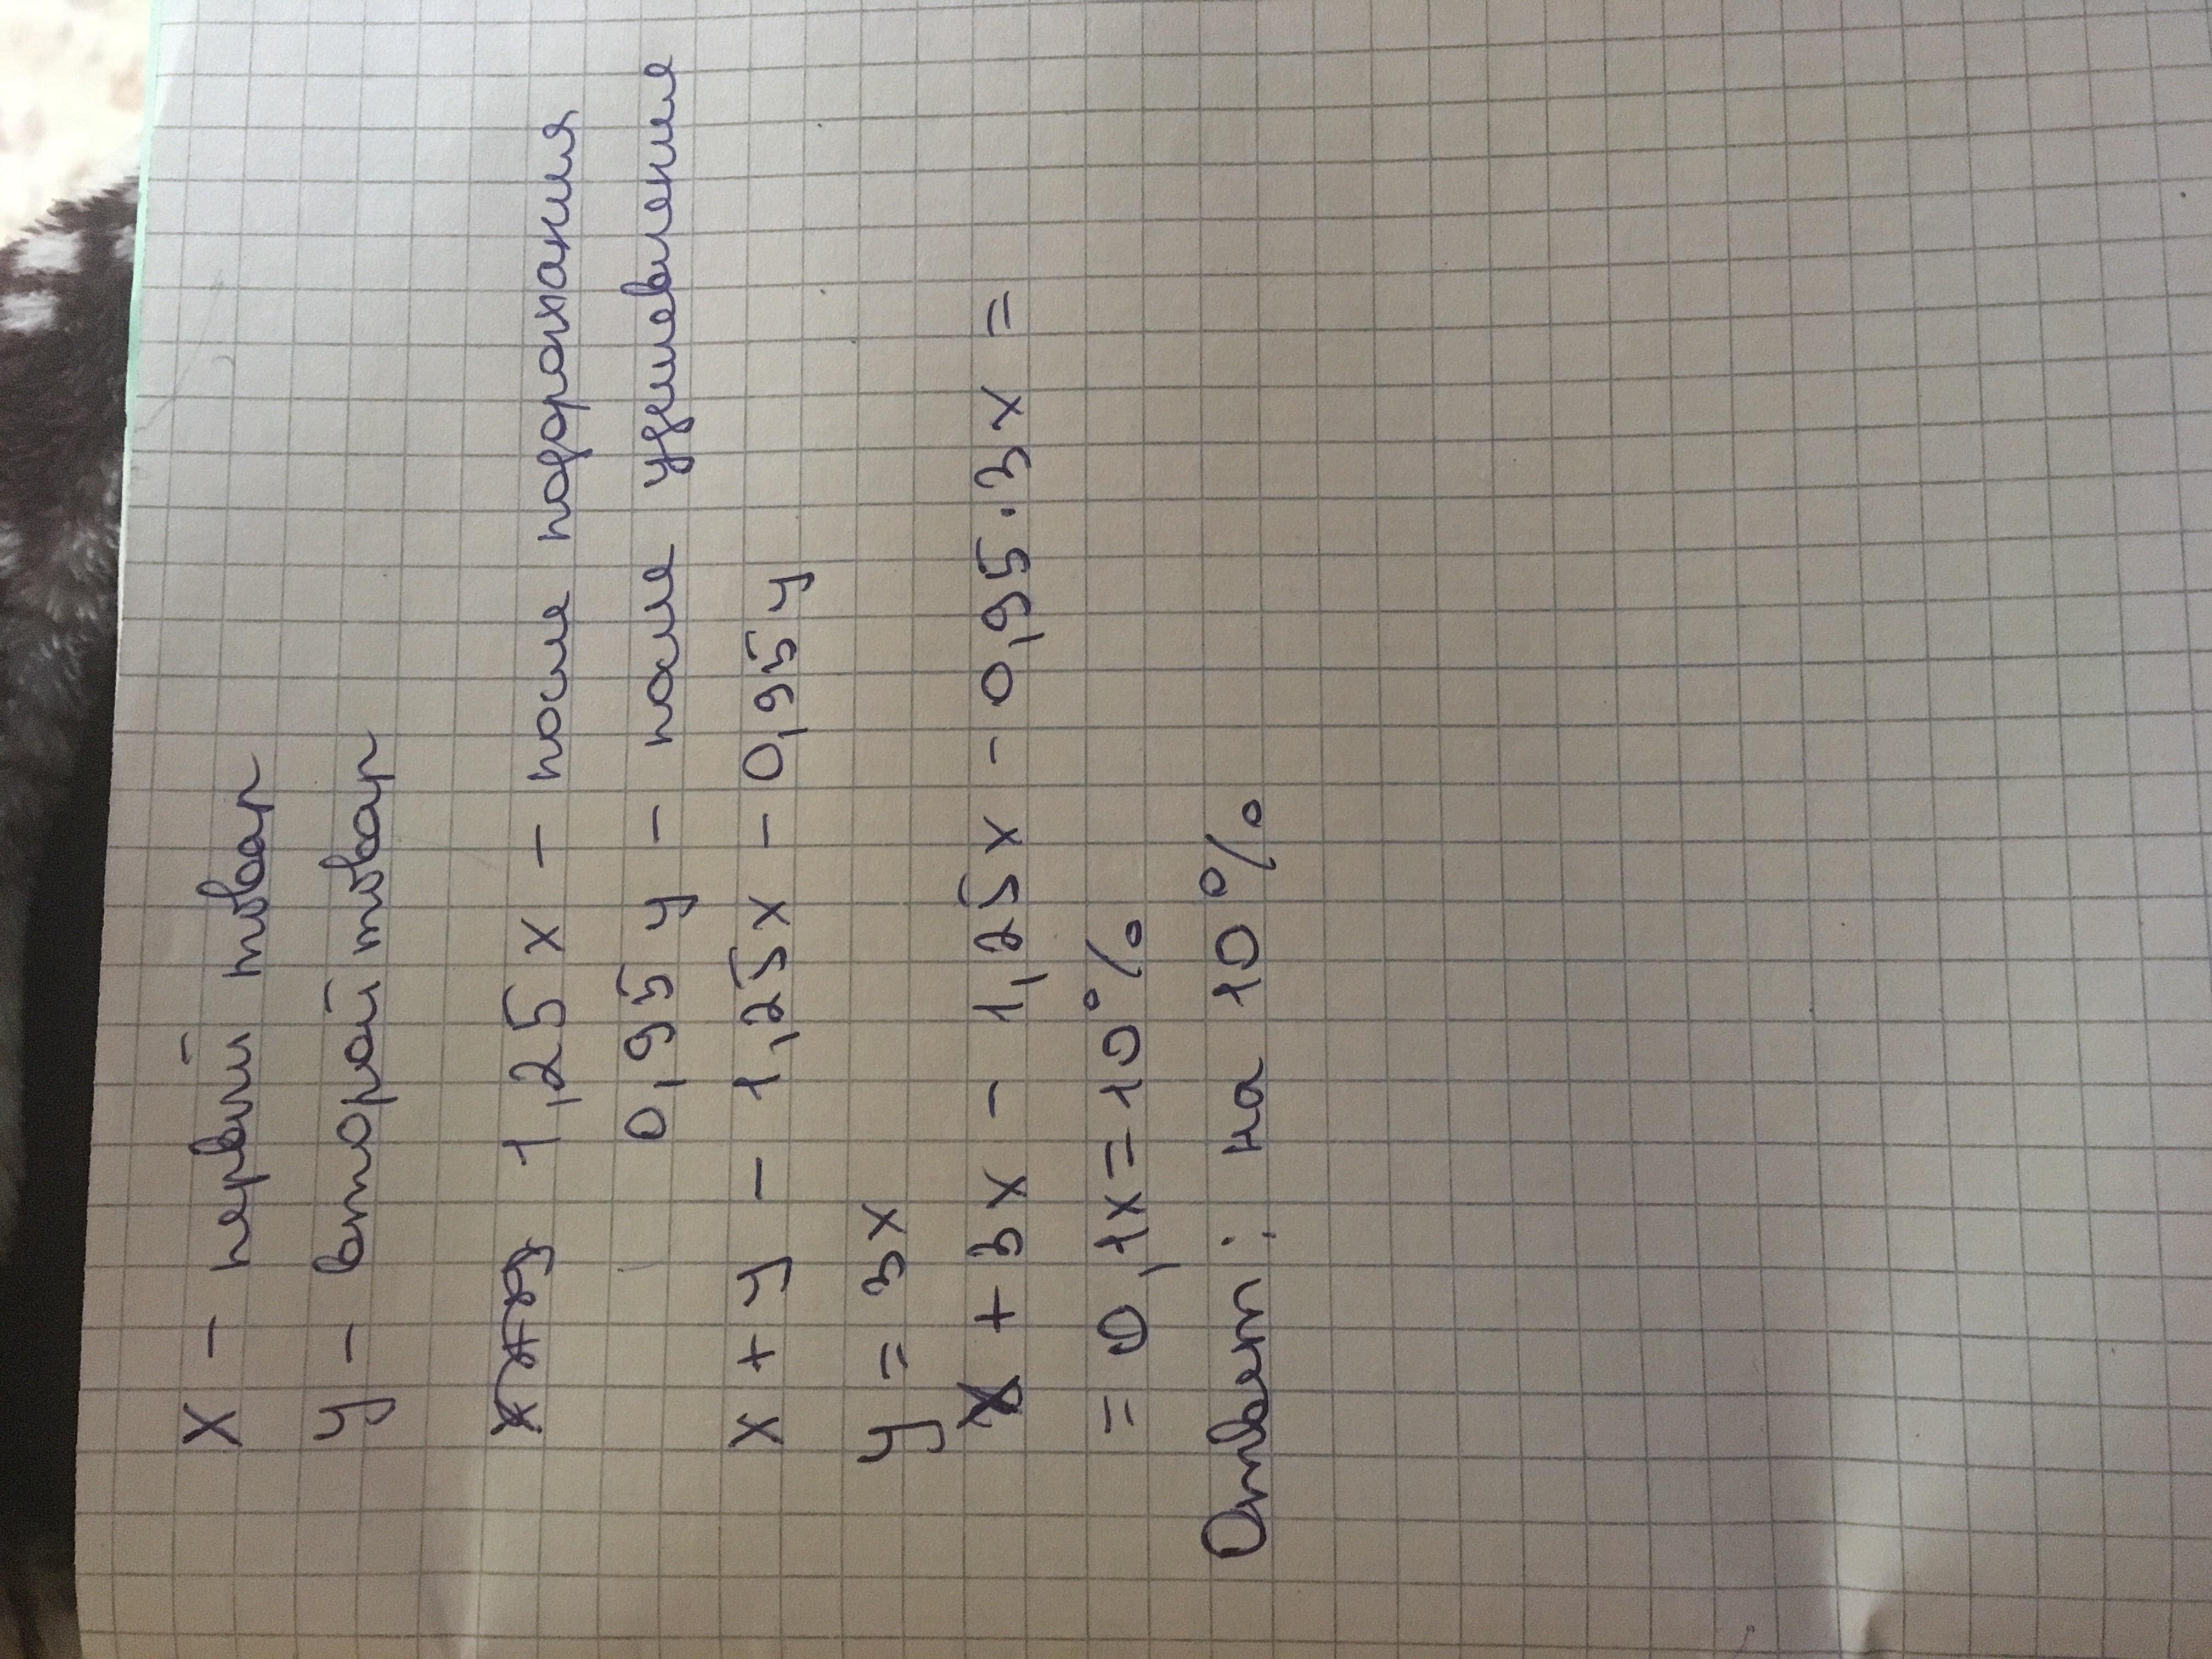 x – первый товар
y – второй товар
1,25 x – после подорожания
0,95 y – после удешевления
x + y – 1,25x – 0,95y
y = 3x
x + 3x – 1,25x – 0,95·3x =
= 0,1x = 10%
Ответ: на 10%